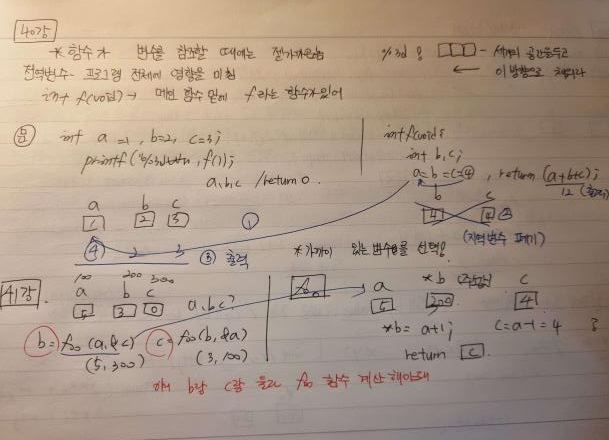 40강
*함수가 변수를 참조할 때에는 젤가까운놈
%3d 는 □□□ - 세개의 공간을두고
← 이 방향으로 채워라
전역변수 - 프로그램 전체에 영향을 미침
int f(void) → 메인 함수 밑에 f라는 함수가있어
문
int a=1, b=2, c=3;
printf("%3d , f());
a,b,c /return 0.
a b c
1 2 3
①
④ 2 3
③ 출력
int f(void){
int b,c;
a=b=c=④, return (a+b+c);
12 (출력)
b c
4 4 ②
(지역변수 폐기)
*가까이 있는 변수를 선택!
41강.
100 200 300
a b c
5 3 0
a,b,c?
b = fo(a,&c)
(5,300)
c = fo(b,&a)
(3,100)
fo
a *b c
5 300 4
*b = a+1; c=a-1=4
return c
아 b랑 c랑 둘다 fo 함수 계산 해야돼